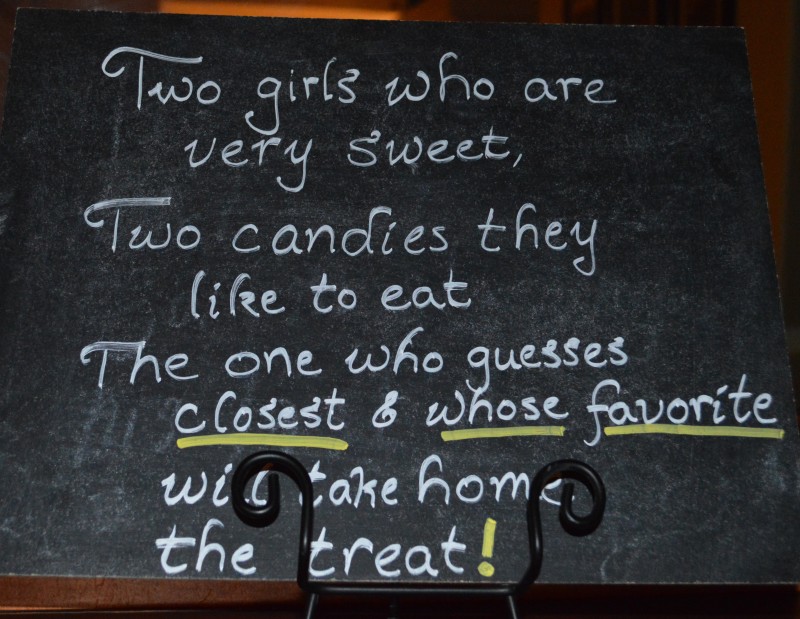 Two girls who are
very sweet,
Two candies they
like to eat
The one who guesses
closest & whose favorite
will take home
the treat!